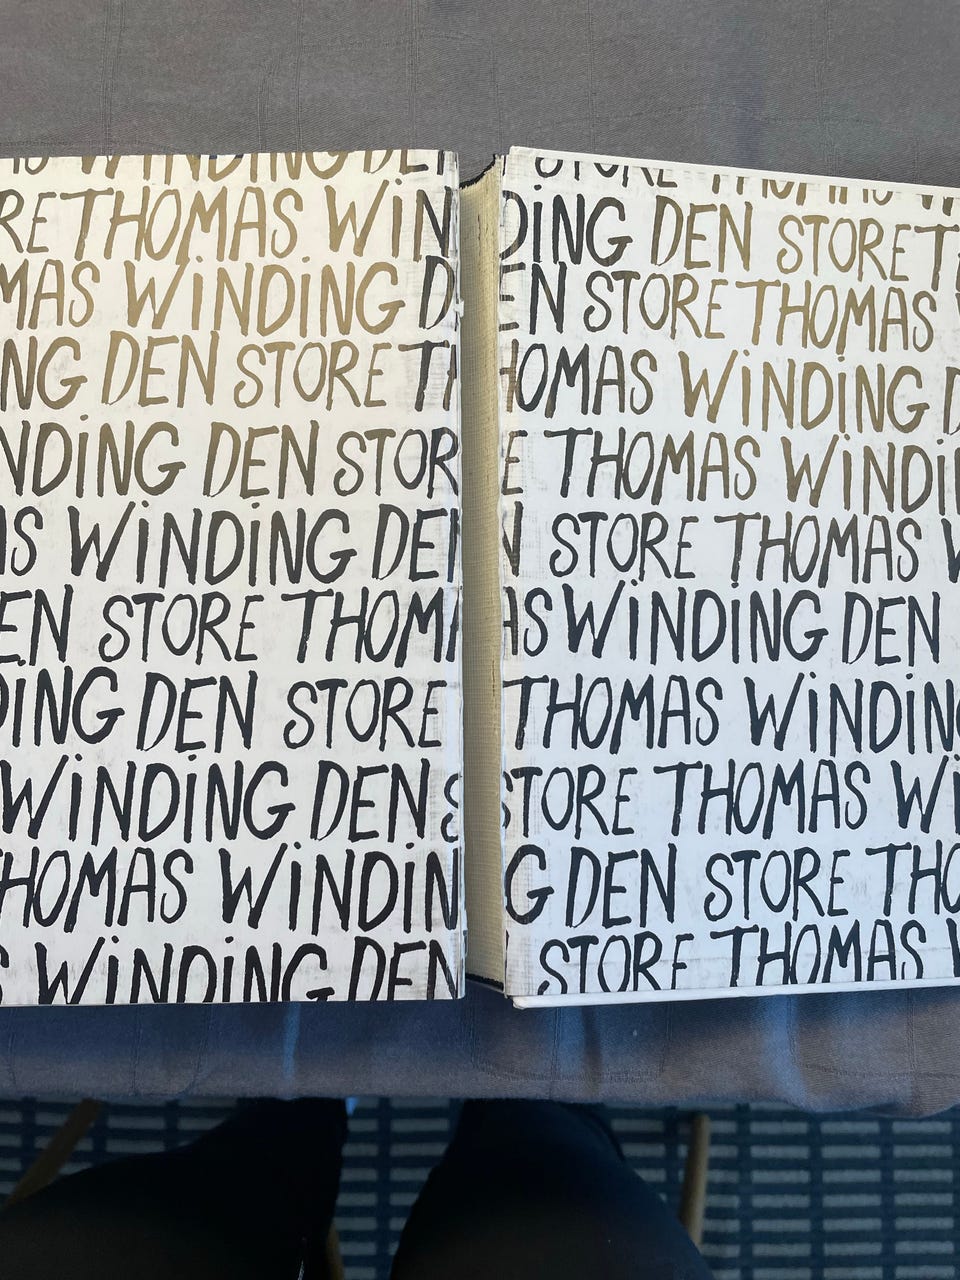 AS WiNDiNG DEN STORE THOMAS W
RE THOMAS WiNDiNG DEN STORE T
MAS WiNDiNG DEN STORE THOMAS
NG DEN STORE THOMAS WiNDiNG D
NDiNG DEN STORE THOMAS WiNDi
AS WiNDiNG DEN STORE THOMAS W
EN STORE THOMAS WiNDiNG DEN
DiNG DEN STORE THOMAS WiNDiN
WiNDiNG DEN STORE THOMAS Wi
THOMAS WiNDiNG DEN STORE THO
S WiNDiNG DEN STORE THOMAS W